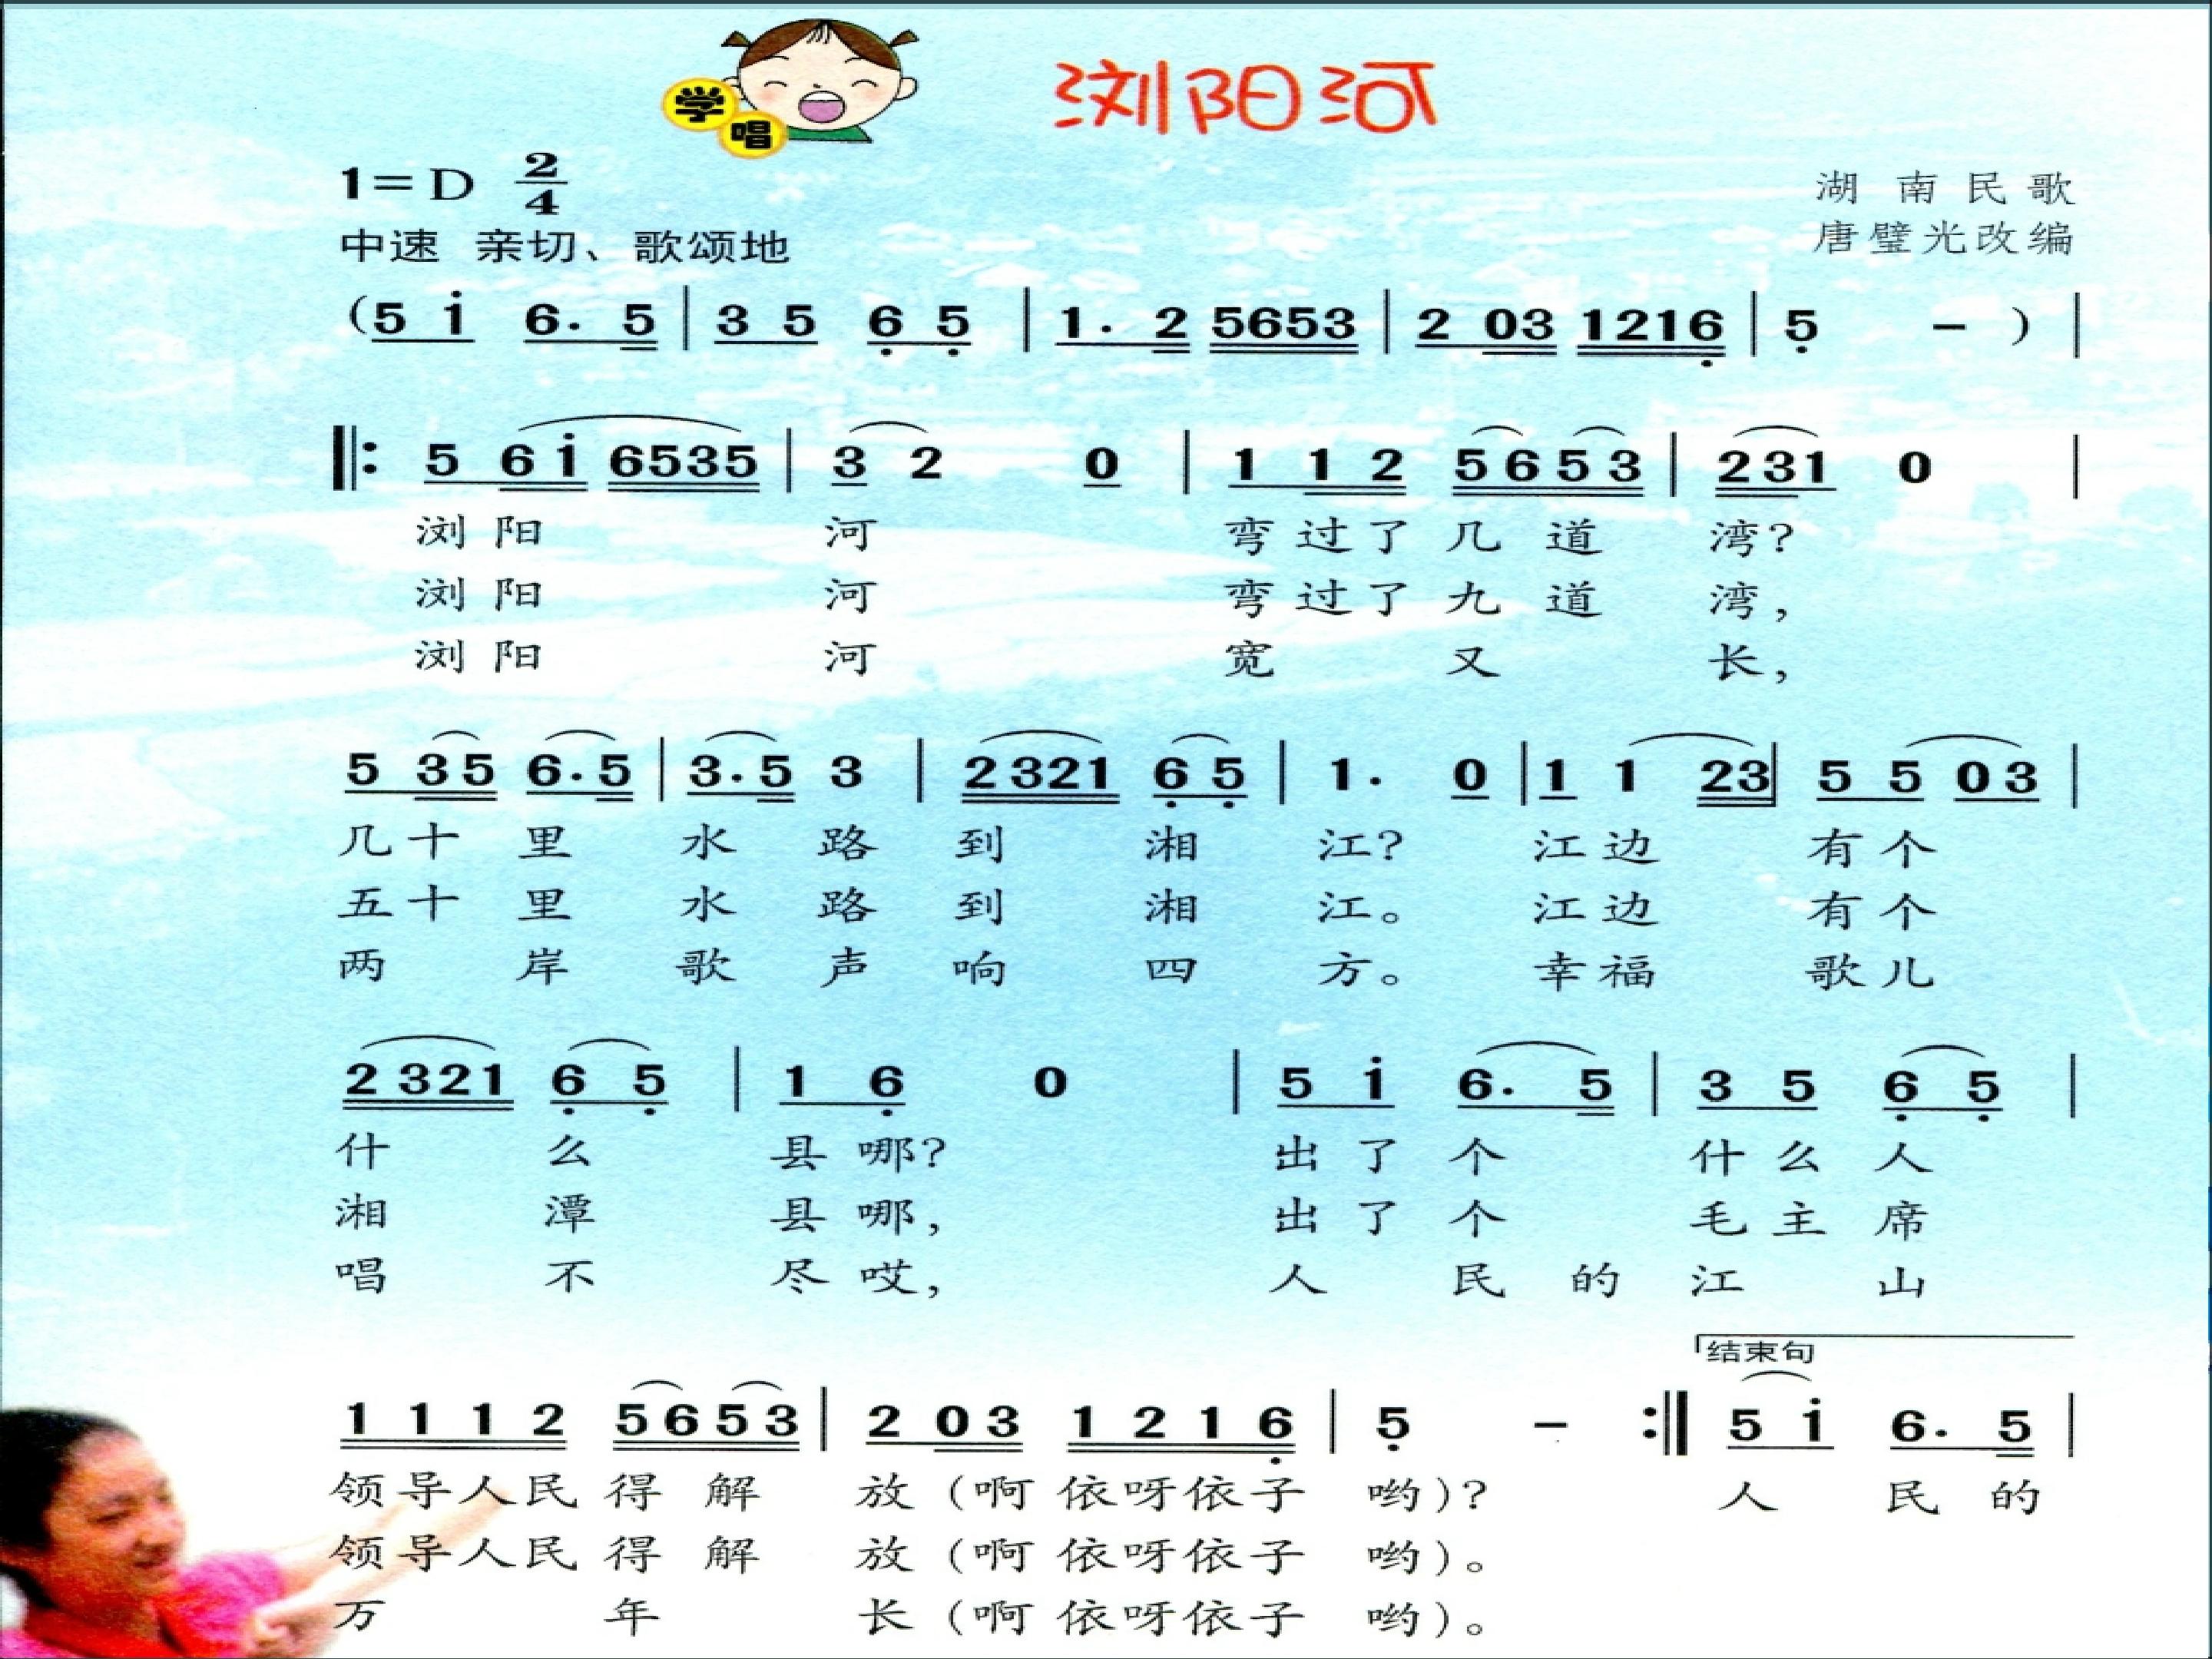 学唱
浏阳河
1=D 2/4
湖南民歌
中速 亲切、歌颂地
唐璧光改编
(5 i̇ 6. 5 | 3 5 6̣ 5̣ | 1. 2 5653 | 2 03 1216̣ | 5̣ - ) |
‖: 5 6 i̇ 6535 | 3 2 0 | 1 1 2 5 6 5 3 | 231 0 |
浏阳河弯过了几道湾?
浏阳河弯过了九道湾,
浏阳河宽又长,
5 3 5 6.5 | 3.5 3 | 2 321 6̣ 5̣ | 1. 0 | 1 1 23 | 5 5 0 3 |
几十里水路到湘江? 江边有个
五十里水路到湘江。 江边有个
两岸歌声响四方。 幸福歌儿
2 321 6̣ 5̣ | 1 6̣ 0 | 5 i̇ 6. 5 | 3 5 6̣ 5̣ |
什么县哪? 出了个什么人
湘潭县哪, 出了个毛主席
唱不尽哎, 人民的江山
结束句
1 1 1 2 5 6 5 3 | 2 0 3 1 2 1 6̣ | 5̣ - :‖ 5 i̇ 6. 5 |
领导人民得解放(啊依呀依子哟)? 人民的
领导人民得解放(啊依呀依子哟)。
万年长(啊依呀依子哟)。